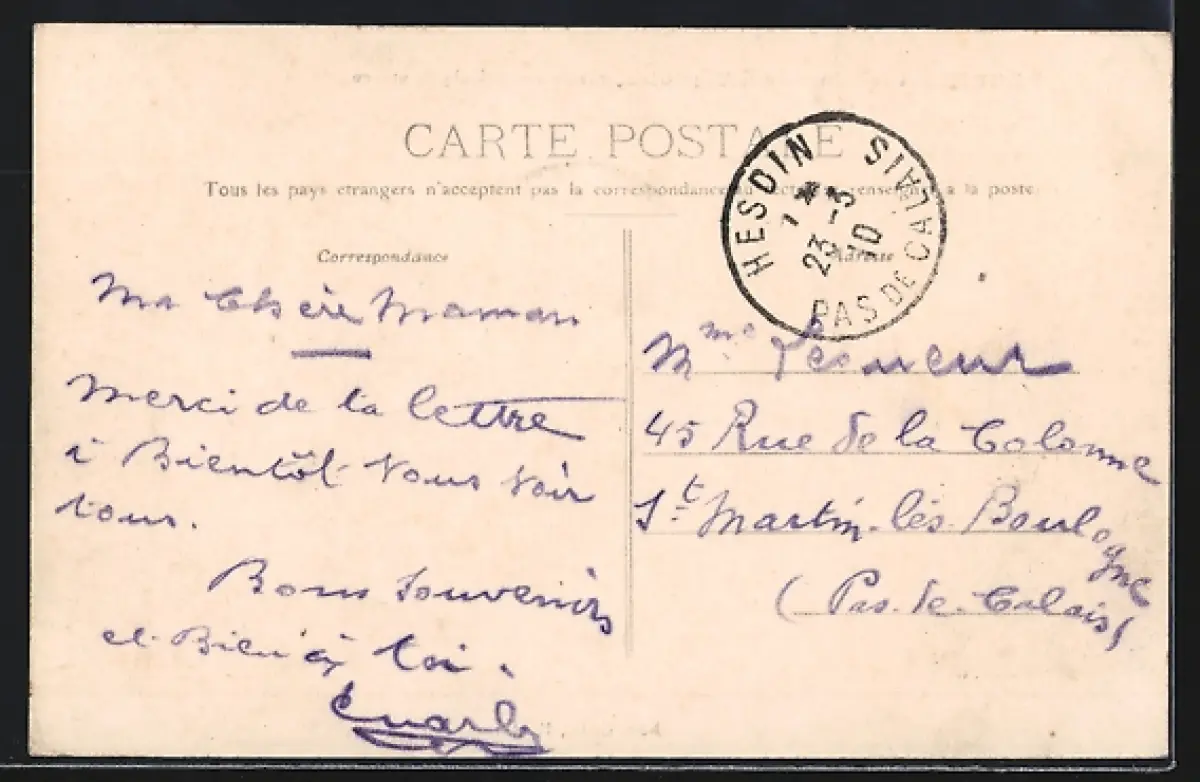 CARTE POSTALE
Tous les pays etrangers n'acceptent pas la correspondance au recto. (se renseigner a la poste
Correspondance
Ma Chère Maman
Merci de ta lettre
à Bientôt vous voir
tous.
Bons souvenirs
et Bien à toi.
Adresse
Mme Lesueur
45 Rue de la Colonne
St Martin-lès-Boulogne
(Pas-de-Calais)
HESDIN
23-3
10
PAS DE CALAIS